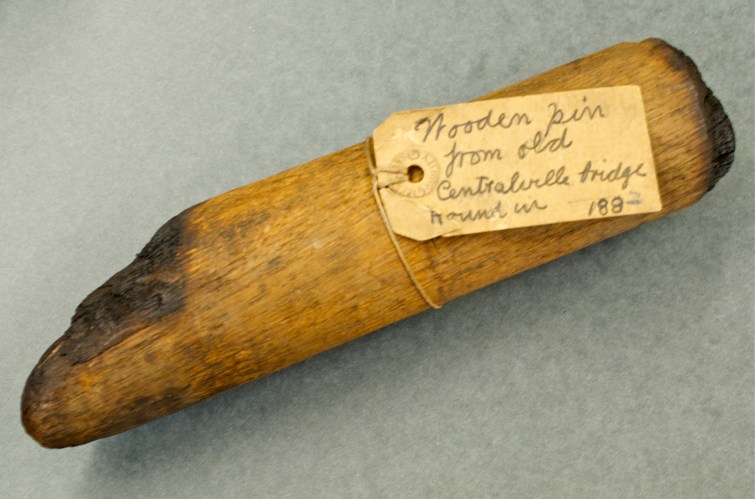 Wooden pin
from old
Centralville bridge
in 188